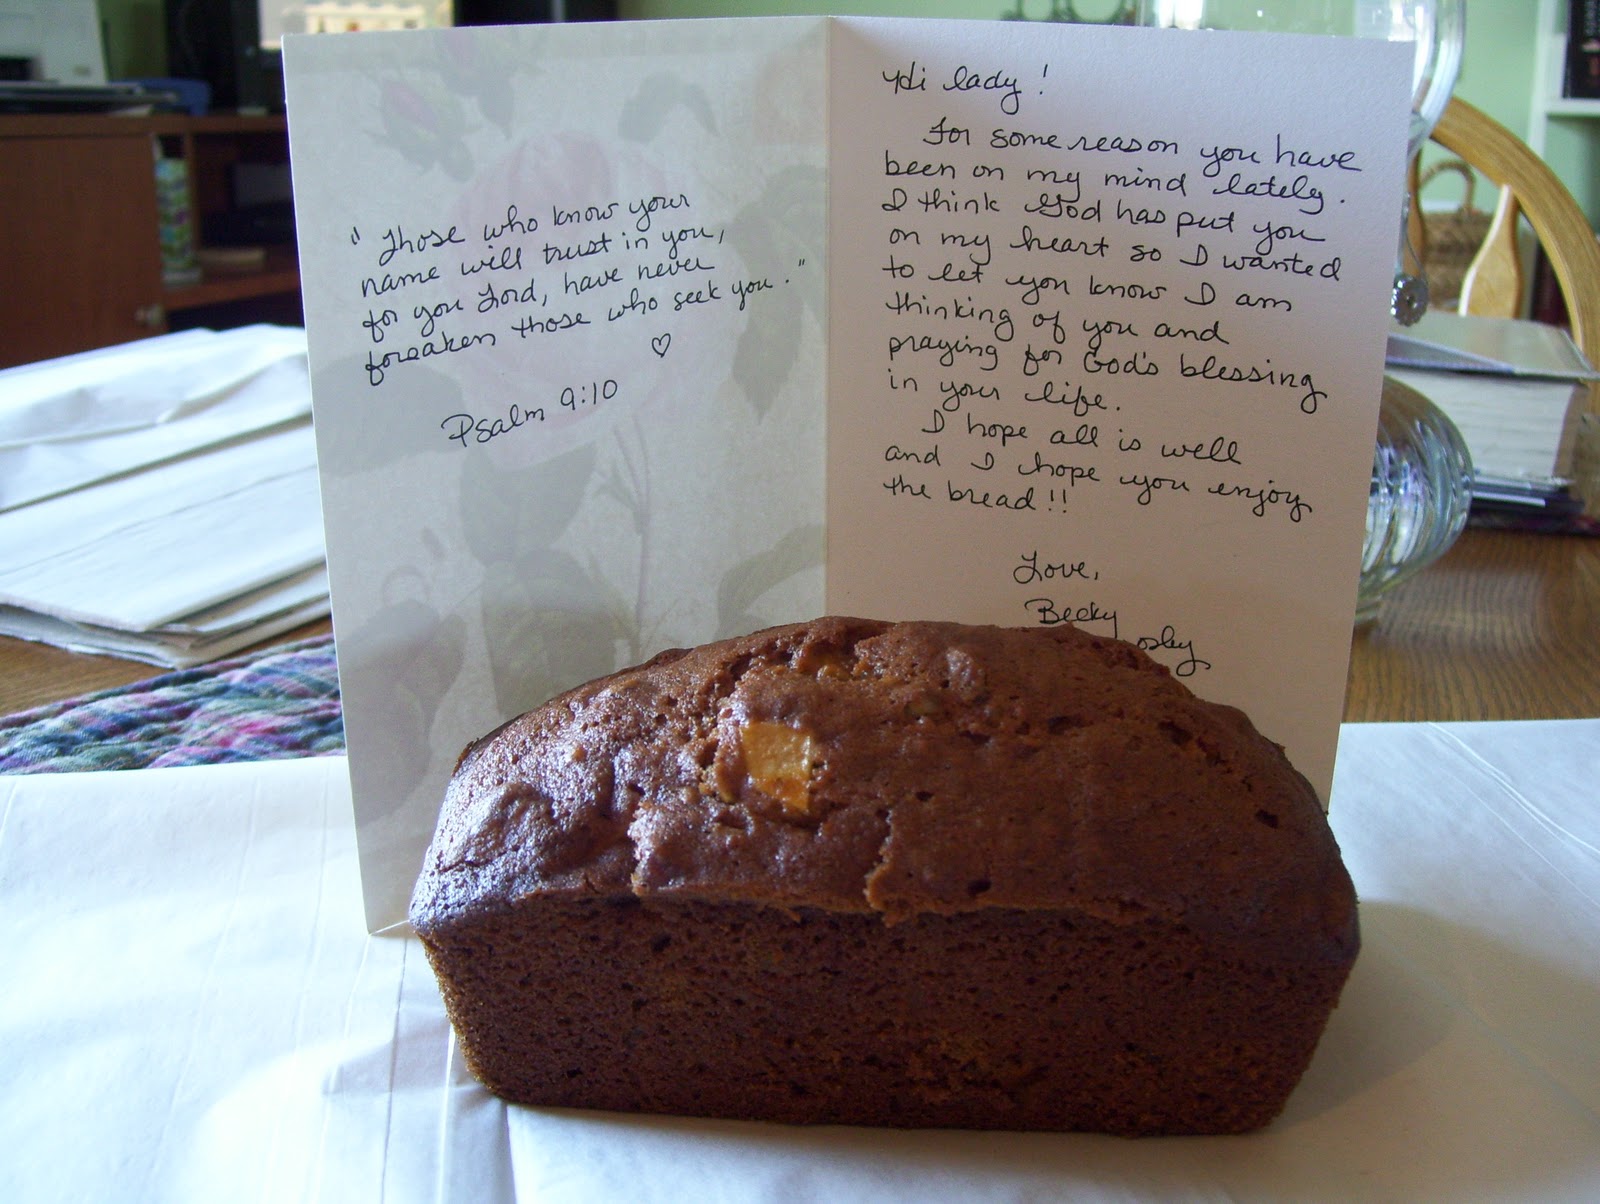 " Those who know your
name will trust in you,
for you Lord, have never
forsaken those who seek you."
Psalm 9:10
Hi lady!
For some reason you have
been on my mind lately.
I think God has put you
on my heart so I wanted
to let you know I am
thinking of you and
praying for God's blessing
in your life.
I hope all is well
and I hope you enjoy
the bread!!
Love,
Becky